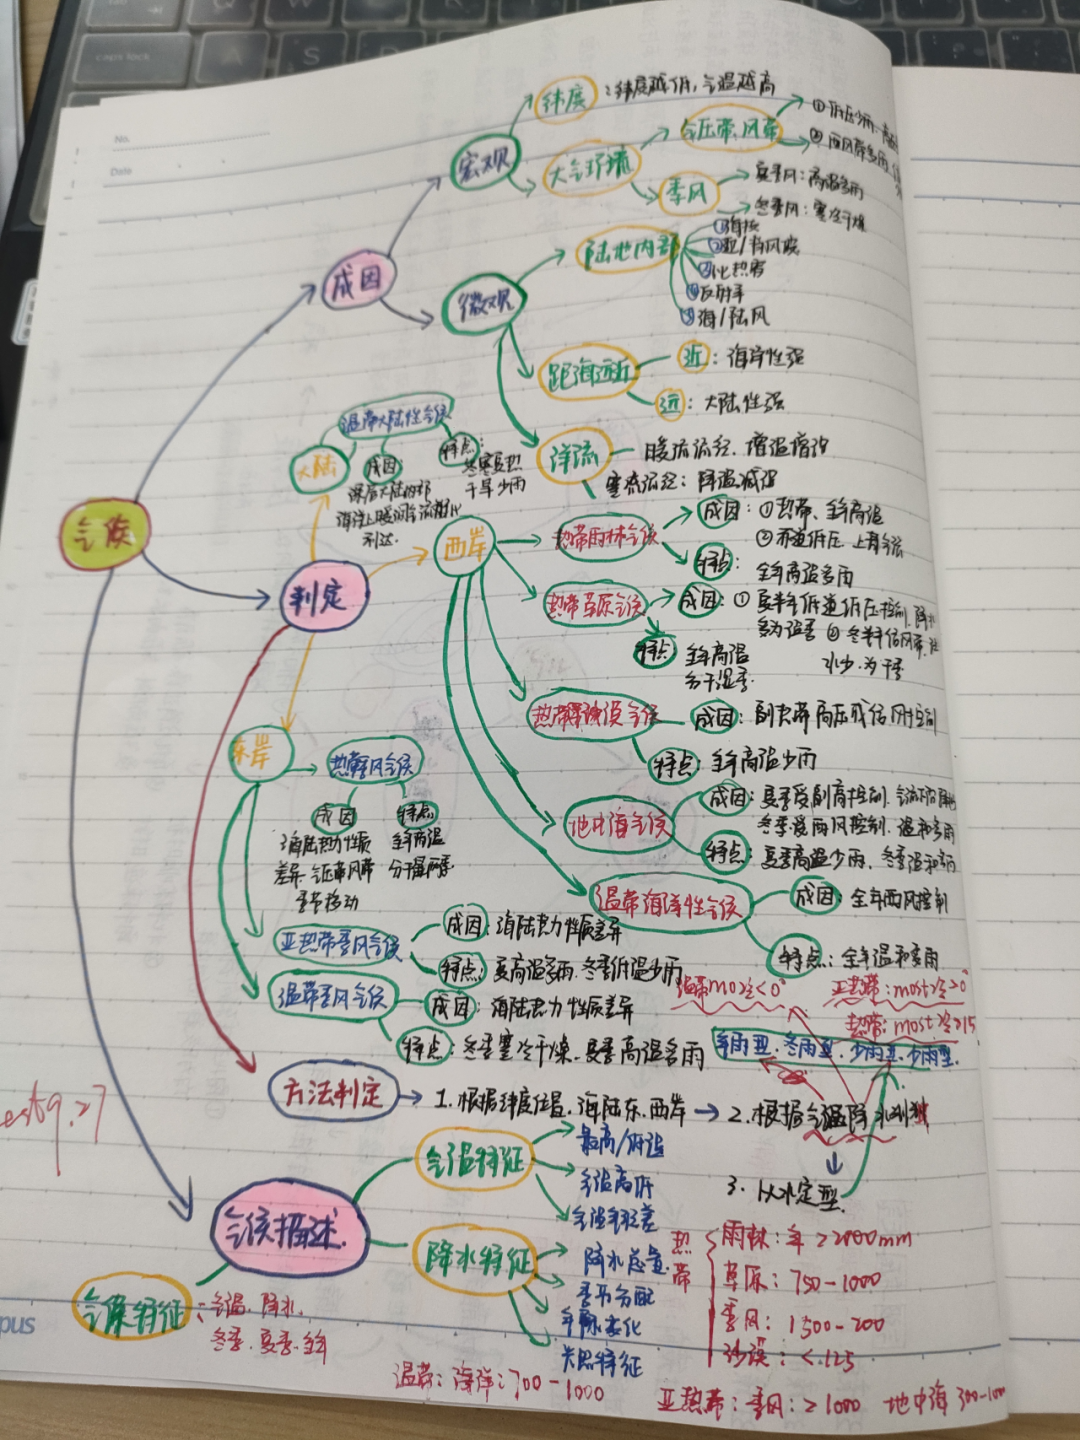 No.
Date
纬度：纬度越低，气温越高
宏观
大气环流
气压带、风带
季风
夏季风：高温多雨
冬季风：寒冷干燥
成因
微观
陆地内部
反射率
海/陆风
距海远近
近：海洋性强
远：大陆性强
洋流
暖流流经：增温增湿
寒流流经：降温减湿
气候
判定
大陆
温带大陆性气候
成因
深居大陆内部
海洋上暖湿气流难以
到达
特点：
冬寒夏热
干旱少雨
西岸
热带雨林气候
成因：①热带、全年高温
②赤道低压 上升气流
特点：
全年高温多雨
热带草原气候
成因：①
特点
全年高温
分干湿季
热带沙漠气候
成因：副热带高压或信风控制
特点：全年高温少雨
地中海气候
成因：夏季受副高控制
冬季受西风控制、温和多雨
特点：夏季高温少雨、冬季温和多雨
温带海洋性气候
成因：全年西风控制
特点：全年温和多雨
东岸
热带季风气候
成因
海陆热力性质
差异、气压带风带
季节移动
特点
全年高温
分干湿两季
亚热带季风气候
成因：海陆热力性质差异
特点：夏高温多雨、冬季低温少雨
温带季风气候
成因：海陆热力性质差异
特点：冬季寒冷干燥、夏季高温多雨
温带most冷<0°
亚热带：most冷>0°
热带：most冷>15
年雨型、冬雨型、少雨型、少雨型.
方法判定
1.根据纬度位置、海陆东、西岸
2.根据气温降水判断
3.以水定型
气候描述
气温特征
最高/低温
气温高低
气温年较差
降水特征
降水总量
季节分配
年际变化
光照特征
气候特征：气温、降水、
冬季、夏季、全年
热带
雨林：年>2000mm
草原：750-1000
季风：1500-200
沙漠：<125
温带：海洋：700-1000
亚热带：季风：>1000 地中海 300-1000
pus